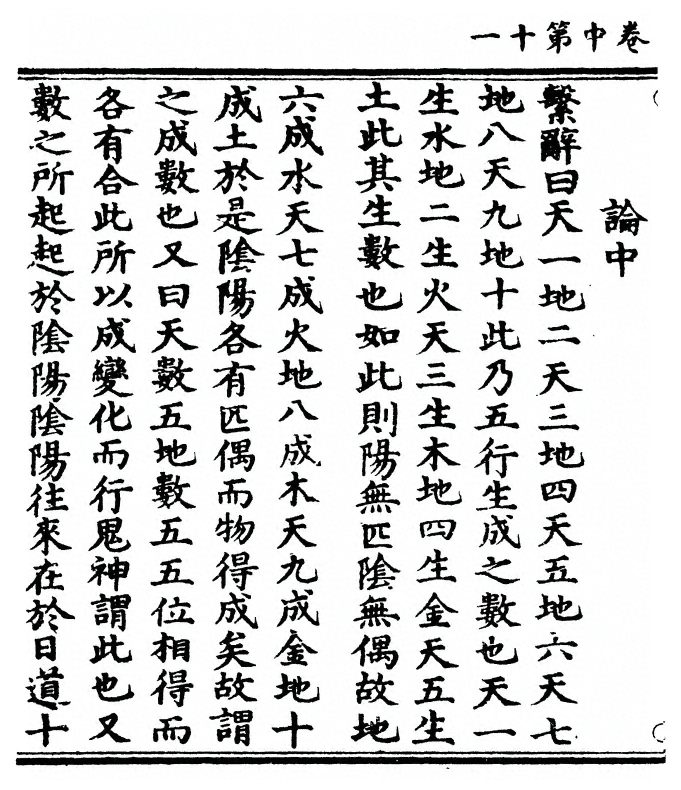 卷中第十一
論中
繫辭曰天一地二天三地四天五地六天七
地八天九地十此乃五行生成之數也天一
生水地二生火天三生木地四生金天五生
土此其生數也如此則陽無匹陰無偶故地
六成水天七成火地八成木天九成金地十
成土於是陰陽各有匹偶而物得成矣故謂
之成數也又曰天數五地數五五位相得而
各有合此所以成變化而行鬼神謂此也又
數之所起起於陰陽陰陽往來在於日道十